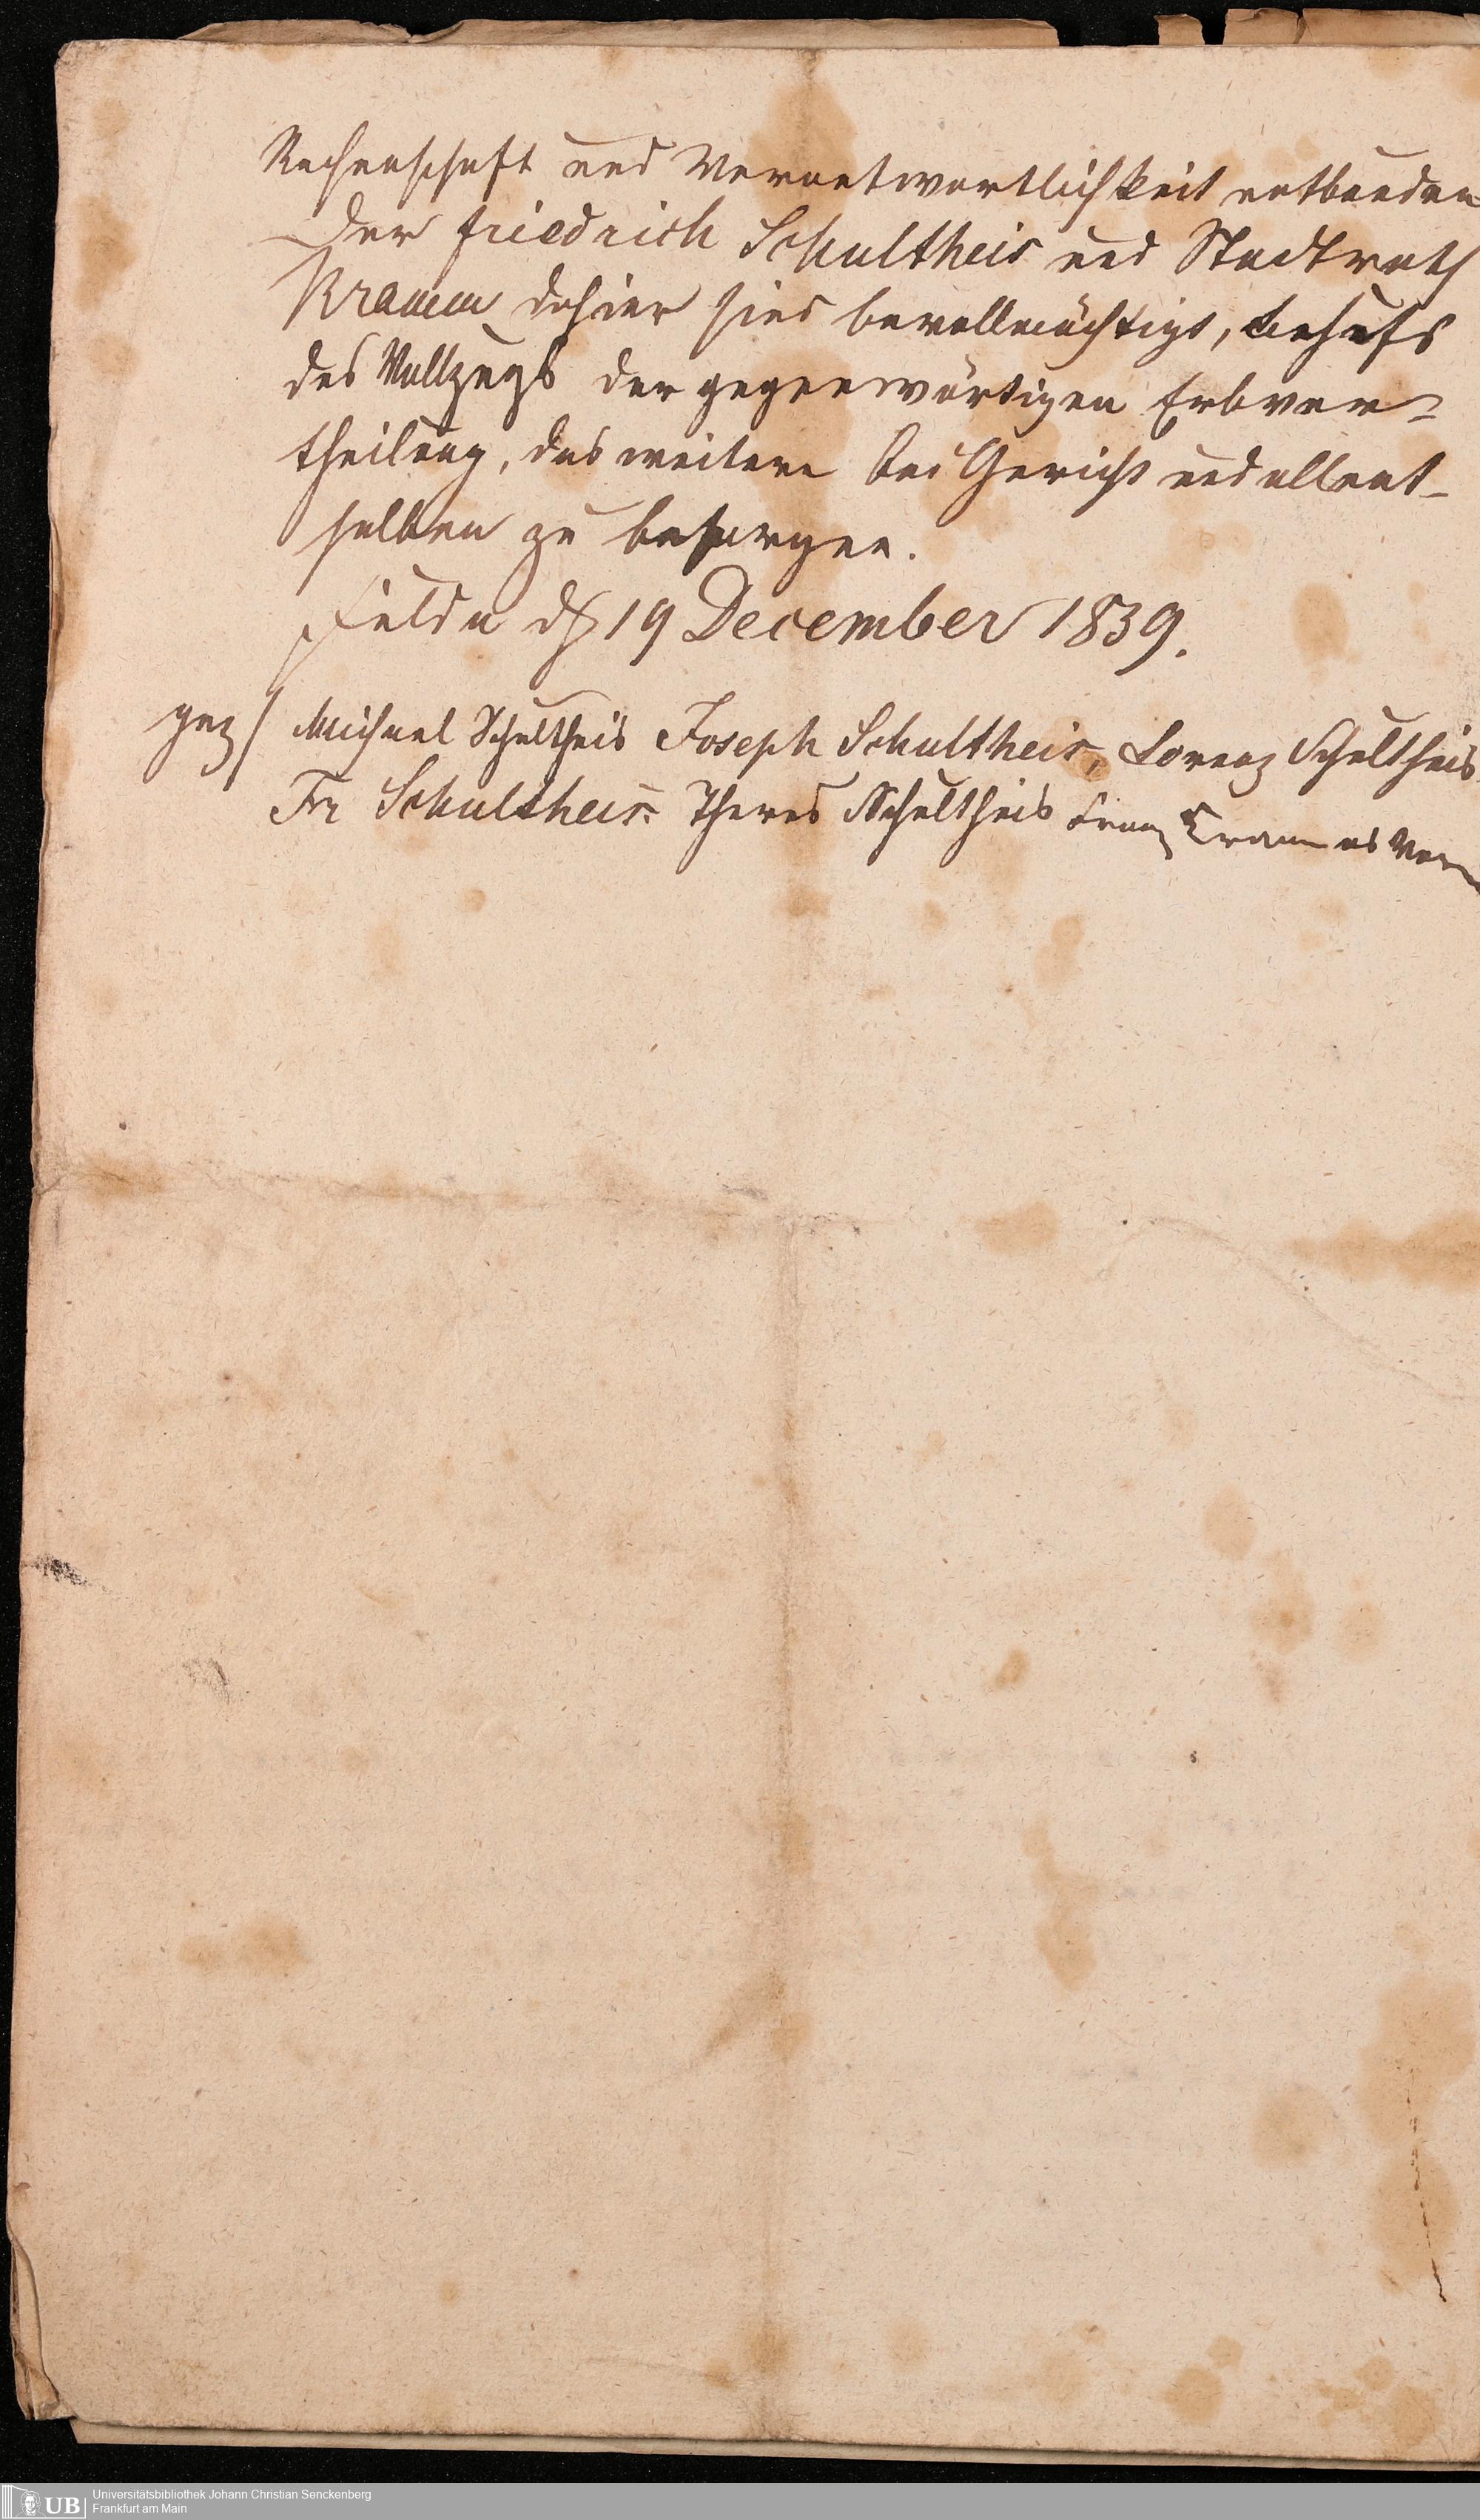 Rechenschaft und Verantwortlichkeit entbunden
Der Friedrich Schultheis und Stadtrath
Kramm dahier sind bevollmächtigt, behufs
des Vollzugs der gegenwärtigen Erbver=
theilung, das weitere bei Gericht und allent-
halben zu besorgen.
Fulda d 19 December 1839.
gez/ Michael Schultheis Joseph Schultheis, Lorenz Schultheis
Fr Schultheis. Theres Schultheis Franz Kramm als Vor
UB
Universitätsbibliothek Johann Christian Senckenberg
Frankfurt am Main